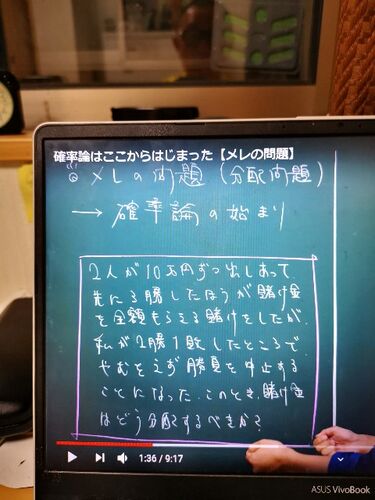 確率論はここからはじまった【メレの問題】
◎ メレの問題 (分配問題)
→ 確率論の始まり
2人が10万円ずつ出しあって
先に3勝したほうが賭け金
を全額もらえる賭けをしたが、
私が2勝1敗したところで
やむをえず勝負を中止する
ことになった. このとき、賭け金
はどう分配するべきか?
1:36 / 9:17
ASUS VivoBook